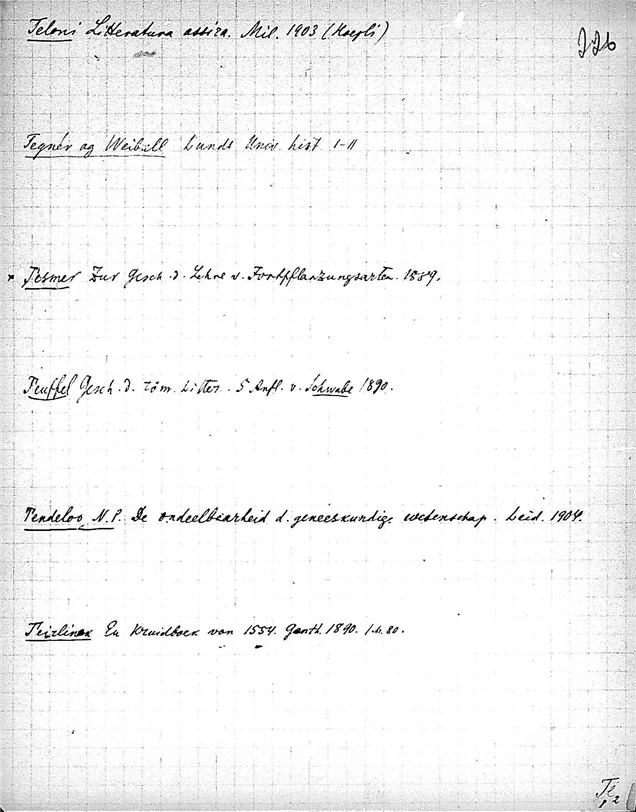 226
Teloni Litteratura assira. Mil. 1903 (Hoepli)
Tegnér og Weibull Lunds Univ. hist I-II
× Tesmer Zur Gesch. d. Lehre v. Fortpflanzungsarten. 1889.
Teuffel Gesch. d. röm. Litter. 5 Aufl. v. Schwabe 1890.
Tendeloo, N.P. De ondeelbaarheid d. geneeskundige wetenschap. Leid. 1904.
Teirlinck Kruidboek van 1554. Genth. 1890. 80.
Te
2